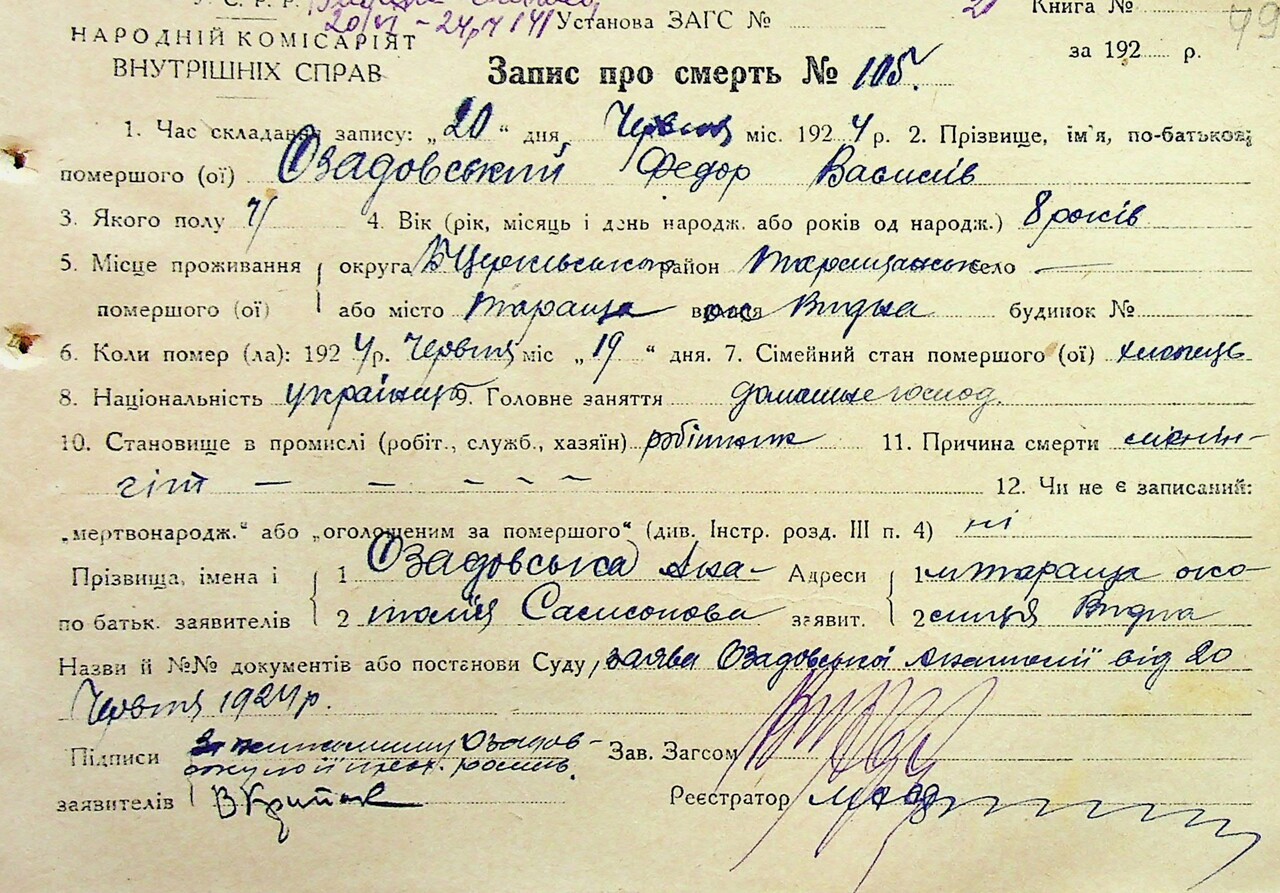 У. С. Р. Р.
20/VI - 24р Установа ЗАГС №
Книга № 49
НАРОДНІЙ КОМІСАРІЯТ
ВНУТРІШНІХ СПРАВ
за 192 р.
Запис про смерть № 105.
1. Час складання запису: „20“ дня, Червня міс. 1924 р. 2. Прізвище, ім'я, по-батькові
помершого (ої) Озадовський Федор Васисів
3. Якого полу ч/ 4. Вік (рік, місяць і день народж. або років од народж.) 8 років
5. Місце проживання округа Б Церківського район Таращанськ село —
помершого (ої) або місто Тараща вулиця будинок №
6. Коли помер (ла): 1924 р. Червня міс „19“ дня. 7. Сімейний стан помершого (ої) хлопець
8. Національність українець 9. Головне заняття домашнє господ.
10. Становище в промислі (робіт., служб., хазяїн) робітник 11. Причина смерти менін-
гіт — — — — — 12. Чи не є записаний:
„мертвонародж.“ або „оголошеним за помершого“ (див. Інстр. розд. III п. 4) ні
Прізвища, імена і 1 Озадовська Ана- Адреси 1 м Тараща око-
по батьк. заявителів 2 толія Самсонова заявит. 2 лиця
Назви й №№ документів або постанови Суду, заява Озадовської Анатолії від 20
Червня 1924 р.
Підписи Озадов- Зав. Загсом
заявителів Реєстратор